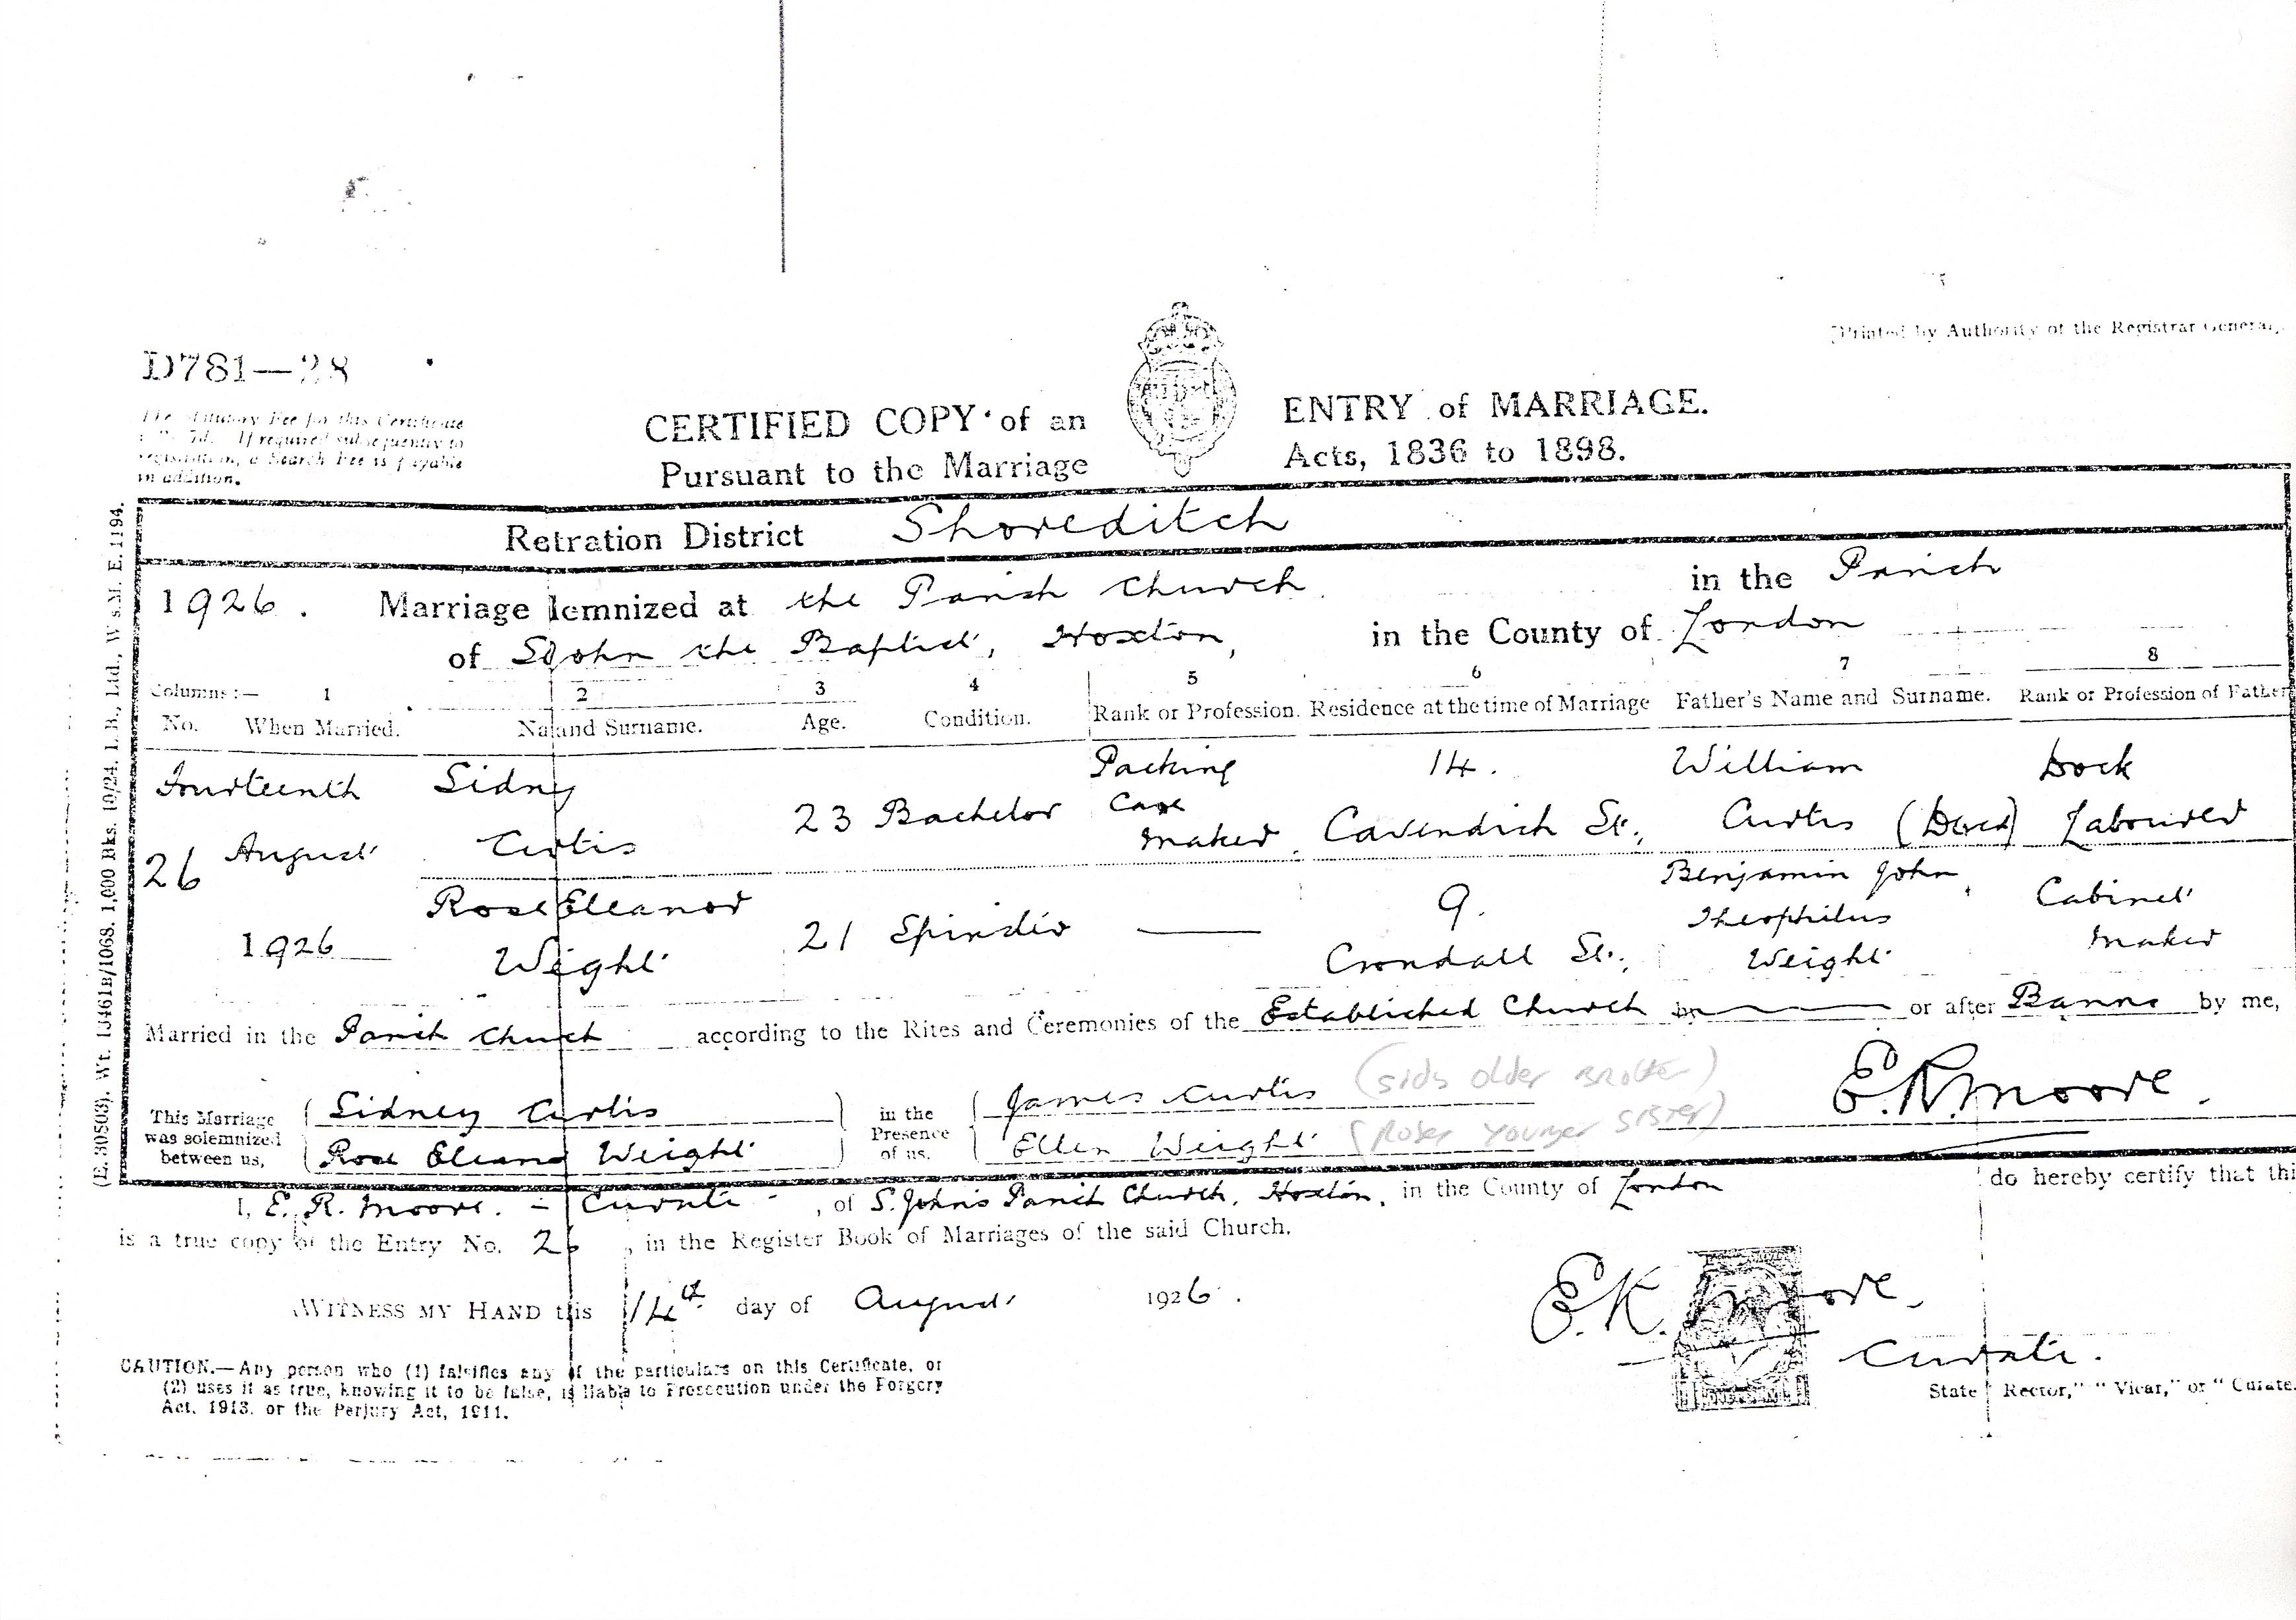 [Printed by Authority of the Registrar General.
D781—28
The Statutory Fee for this Certificate
7d. If required subsequently to
registration, a Search Fee is payable
in addition.
CERTIFIED COPY of an ENTRY of MARRIAGE.
Pursuant to the Marriage Acts, 1836 to 1898.
(E. 30803). Wt. 13461B/1068. 1,000 Bks. 10/24. Ltd., E. 1194.
Retration District Shoreditch
1926. Marriage lemnized at the Parish Church in the Parish
of St John the Baptist, Hoxton, in the County of London
Columns:— 1 2 3 4 5 6 7 8
No. When Married. Na and Surname. Age. Condition. Rank or Profession. Residence at the time of Marriage Father's Name and Surname. Rank or Profession of Father
Fourteenth Sidny Packing 14. William Dock
August Curtis 23 Bachelor Case maker Cavendish St., Curtis (Decd) Labourer
26
Rose Eleanor 9. Benjamin John Cabinet
1926 Wight 21 Spinster — Crondall St., Theophilus Weight maker
Married in the Parish Church according to the Rites and Ceremonies of the Established Church by — or after Banns by me,
This Marriage was solemnized between us,
Sidney Curtis
Rose Eleanor Weight
in the Presence of us.
James Curtis (sids older Brother)
Ellen Weight (Roses younger sister)
E.R. Moore.
I, E. R. Moore. - Curate -, of S. John's Parish Church, Hoxton, in the County of London do hereby certify that thi
is a true copy of the Entry No. 26, in the Register Book of Marriages of the said Church.
WITNESS MY HAND this 14th day of August 1926.
E.R. Moore.
Curate.
State "Rector," "Vicar," or "Curate.
CAUTION.—Any person who (1) falsifies any of the particulars on this Certificate, or
(2) uses it as true, knowing it to be false, is liable to Prosecution under the Forgery
Act, 1913, or the Perjury Act, 1911.